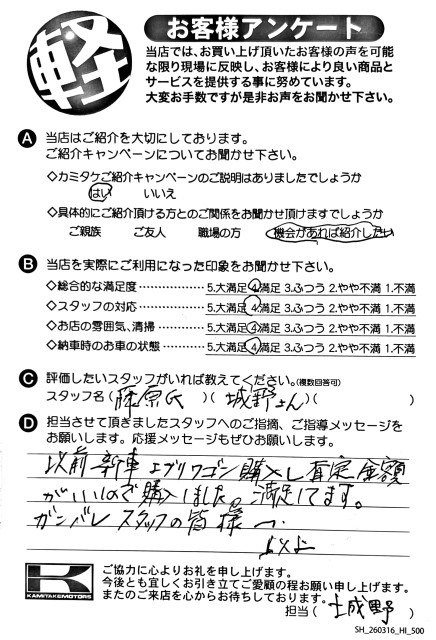 軽
お客様アンケート
当店では、お買い上げ頂いたお客様の声を可能
な限り現場に反映し、お客様により良い商品と
サービスを提供する事に努めています。
大変お手数ですが是非お声をお聞かせ下さい。
A 当店はご紹介を大切にしております。
ご紹介キャンペーンについてお聞かせ下さい。
◇カミタケご紹介キャンペーンのご説明はありましたでしょうか
はい いいえ
◇具体的にご紹介頂ける方とのご関係をお聞かせ頂けますでしょうか
ご親族 ご友人 職場の方 機会があれば紹介したい
B 当店を実際にご利用になった印象をお聞かせ下さい。
◇総合的な満足度………………5.大満足 4.満足 3.ふつう 2.やや不満 1.不満
◇スタッフの対応………………5.大満足 4.満足 3.ふつう 2.やや不満 1.不満
◇お店の雰囲気、清掃…………5.大満足 4.満足 3.ふつう 2.やや不満 1.不満
◇納車時のお車の状態…………5.大満足 4.満足 3.ふつう 2.やや不満 1.不満
C 評価したいスタッフがいれば教えてください。(複数回答可)
スタッフ名(藤原氏)(城野さん)( )
D 担当させて頂きましたスタッフへのご指摘、ご指導メッセージを
お願いします。応援メッセージもぜひお願いします。
以前新車エブリワゴン購入し査定金額
がいいので購入しました。満足してます。
ガンバレスタッフの皆様へ
以上
K
KAMITAKEMOTORS
ご協力に心よりお礼を申し上げます。
今後とも宜しくお引き立てご愛顧の程お願い申し上げます。
またのご来店を心からお待ちしております。
担当(城野)
SH_260316_HI_500